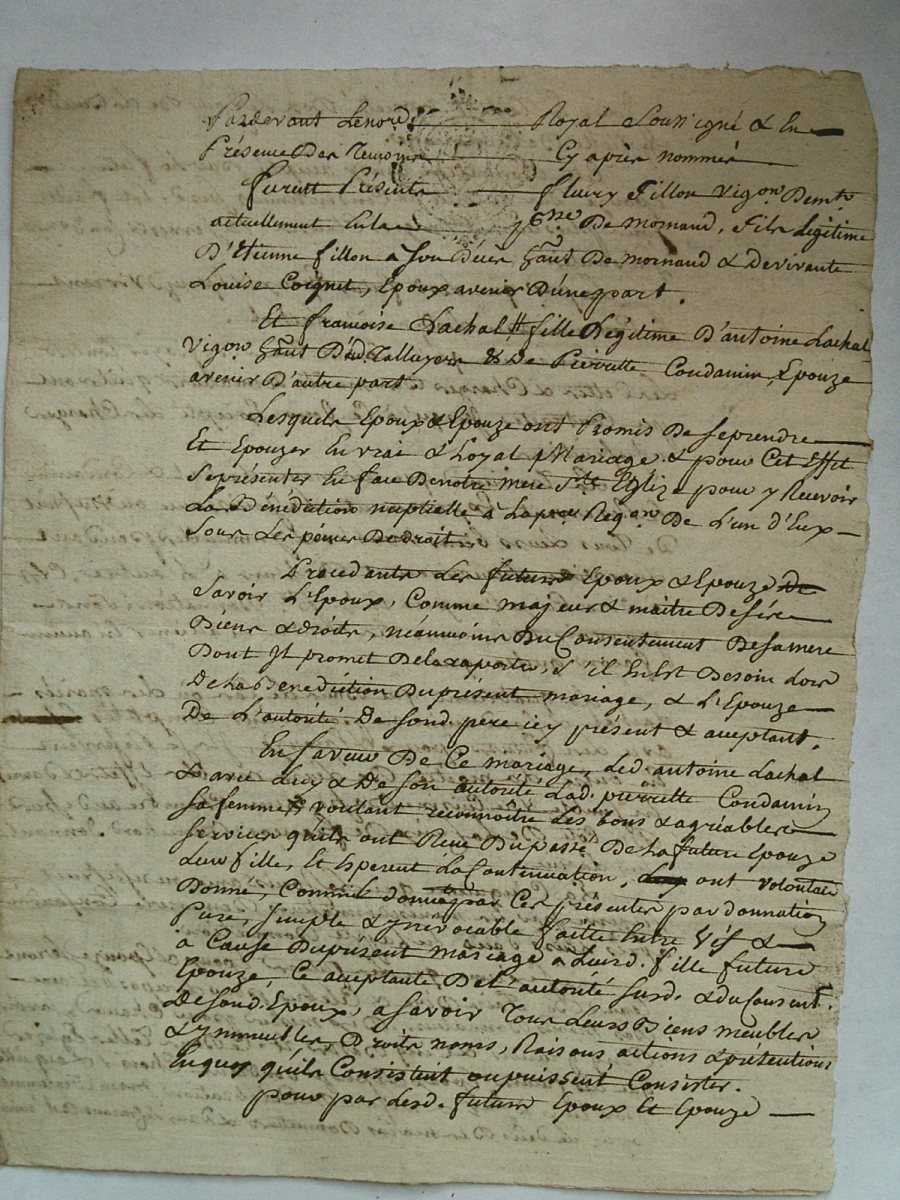 Pardevant Le no.re Royal Soussigné & En
Présence Des Temoins Cy après nommés
furent Présents fleury fillon Vigon. Demt.
actuellement En la De mornand, fils Légitime
D'Etienne fillon a son Décès gant De mornand & De vivante
Louise Coignet, Epoux avenir D'une part.
Et françoise Lachal # fille Légitime D'antoine Lachal
Vigon. gant Dud. Talluyers & De Pierrette Condamin, Epouze
avenir D'autre part.
Lesquels Epoux & Epouze ont Promis De se prendre
Et Epouzer En vrai & Loyal Mariage & pour Cet Effet
Se présenter En face De notre mere Ste. Eglize pour y Recevoir
La Bénédiction nuptialle a La pre. Reqon. De L'un d'Eux
Sous Les peines De droit.
Procedants Les futurs Epoux & Epouze
Savoir L'Epoux, Comme majeur & maitre De ses
Biens & droits, néanmoins Du Consentement De sa mere
Dont Jl promet De la raporter, S'il En Est Besoin Lors
De La Benediction Du présent mariage, & L'Epouze
De L'autorité De sond. pere icy présent & acceptant.
En faveur De Ce mariage, Led. antoine Lachal
& avec Luy & De son autorité Lad. pierrette Condamin
sa femme # voulant reconnoître Les bons & agréables
services qu'ils ont Reçu Du passé De La future Epouze
Leur fille, Et Esperent La Continuation, ont volontair
Donné, Comme donnent par Ces présentes par donnation
Pure, simple & yrévocable faitte Entre Vifs &
a Cause Du présent mariage a Leurd. fille future
Epouze, Ce acceptante De L'autorité susd. & du Consent.
De sond. Epoux, a savoir Tous Leurs Biens meubles
& ymmeubles, Droits noms, Raisons actions & prétentions
En quoy qu'ils Consistent ou puissent Consister.
pour par Lesd. futurs Epoux Et Epouze